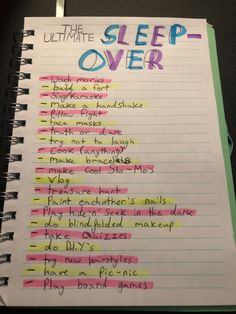 THE
ULTIMATE SLEEP-
OVER
- Wach movies
- build a fort
- Sing/Karaoke
- Make a handshake
- Pillow fight
- face masks
- truth or dare
- try not to laugh
- Cook (anything)
- make bracelets
- make cool Slo-Mo's
- Vlog
- treasure hunt
- Paint eachother's nails
- Play hide'n' Seek in the dark
- do blindfolded makeup
- take Quizzes
- do D.I.Y's
- try new hairstyles
- have a Pic-nic
- Play board games